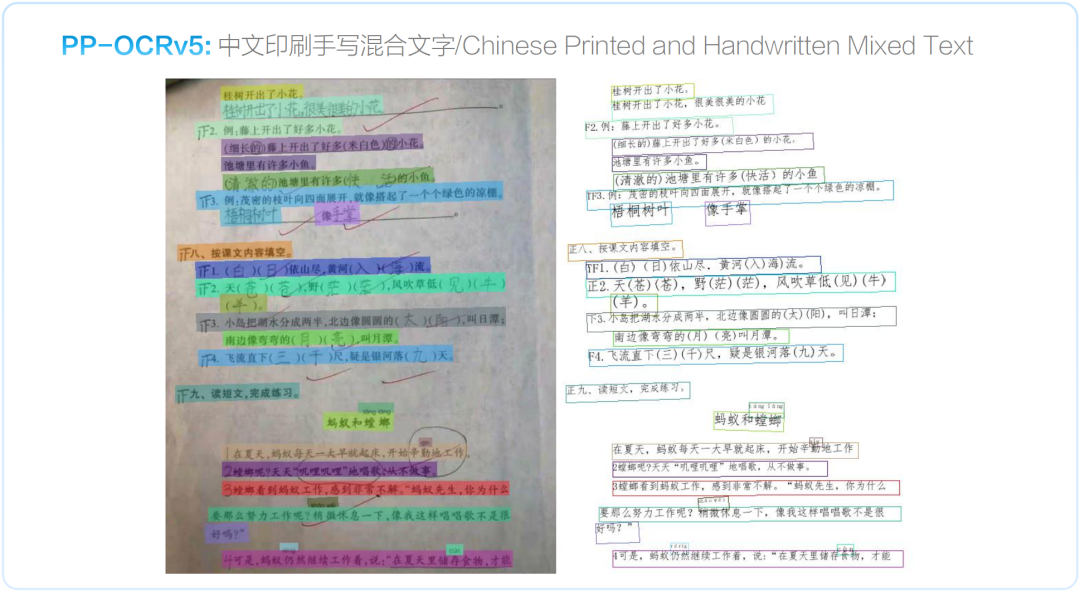 PP-OCRv5: 中文印刷手写混合文字/Chinese Printed and Handwritten Mixed Text
桂树开出了小花。
桂树开出了小花,很美很美的小花
正2. 例:藤上开出了好多小花。
(细长的)藤上开出了好多(米白色)的小花。
池塘里有许多小鱼。
(清澈的)池塘里有许多(快活)的小鱼。
正3. 例:茂密的枝叶向四面展开,就像搭起了一个个绿色的凉棚。
梧桐树叶 像手掌
正八、按课文内容填空。
正1. (白)(日)依山尽,黄河(入)(海)流。
正2. 天(苍)(苍),野(茫)(茫),风吹草低(见)(牛)
(羊)。
正3. 小岛把湖水分成两半,北边像圆圆的(太)(阳),叫日潭;
南边像弯弯的(月)(亮),叫月潭。
正4. 飞流直下(三)(千)尺,疑是银河落(九)天。
正九、读短文,完成练习。
táng láng
蚂蚁和螳螂
1在夏天,蚂蚁每天一大早就起床,开始辛勤地工作
2螳螂呢?天天“叽哩叽哩”地唱歌,从不做事。
3螳螂看到蚂蚁工作,感到非常不解。“蚂蚁先生,你为什么
要那么努力工作呢?稍微休息一下,像我这样唱唱歌不是很
好吗?”
4可是,蚂蚁仍然继续工作着,说:“在夏天里储存食物,才能
桂树开出了小花,
桂树开出了小花,很美很美的小花
F2.例:藤上开出了好多小花。
(细长的)藤上开出了好多(米白色)的小花,
池塘里有许多小鱼。
(清澈的)池塘里有许多(快活)的小鱼
TF3.例:茂密的枝叶向四面展开,就像搭起了一个个绿色的凉棚。
梧桐树叶 像手掌
正八、按课文内容填空。
TF1.(白)(日)依山尽,黄河(入)海)流。
正2.天(苍)(苍),野(茫)(茫),风吹草低(见)(牛)
(羊)。
下3.小岛把湖水分成两半,北边像圆圆的(太)(阳),叫日潭;
南边像弯弯的(月)(亮)叫月潭。
F4.飞流直下(三)(千)尺,疑是银河落(九)天。
正九、读短文,完成练习。
táng láng
蚂蚁和螳螂
在夏天,蚂蚁每天一大早就起床,开始辛勤地工作
2螳螂呢?天天“叽哩叽哩”地唱歌,从不做事。
3螳螂看到蚂蚁工作,感到非常不解。“蚂蚁先生,你为什么
要那么努力工作呢?稍微休息一下,像我这样唱唱歌不是很
好吗?”
4可是,蚂蚁仍然继续工作着,说:“在夏天里储存食物,才能